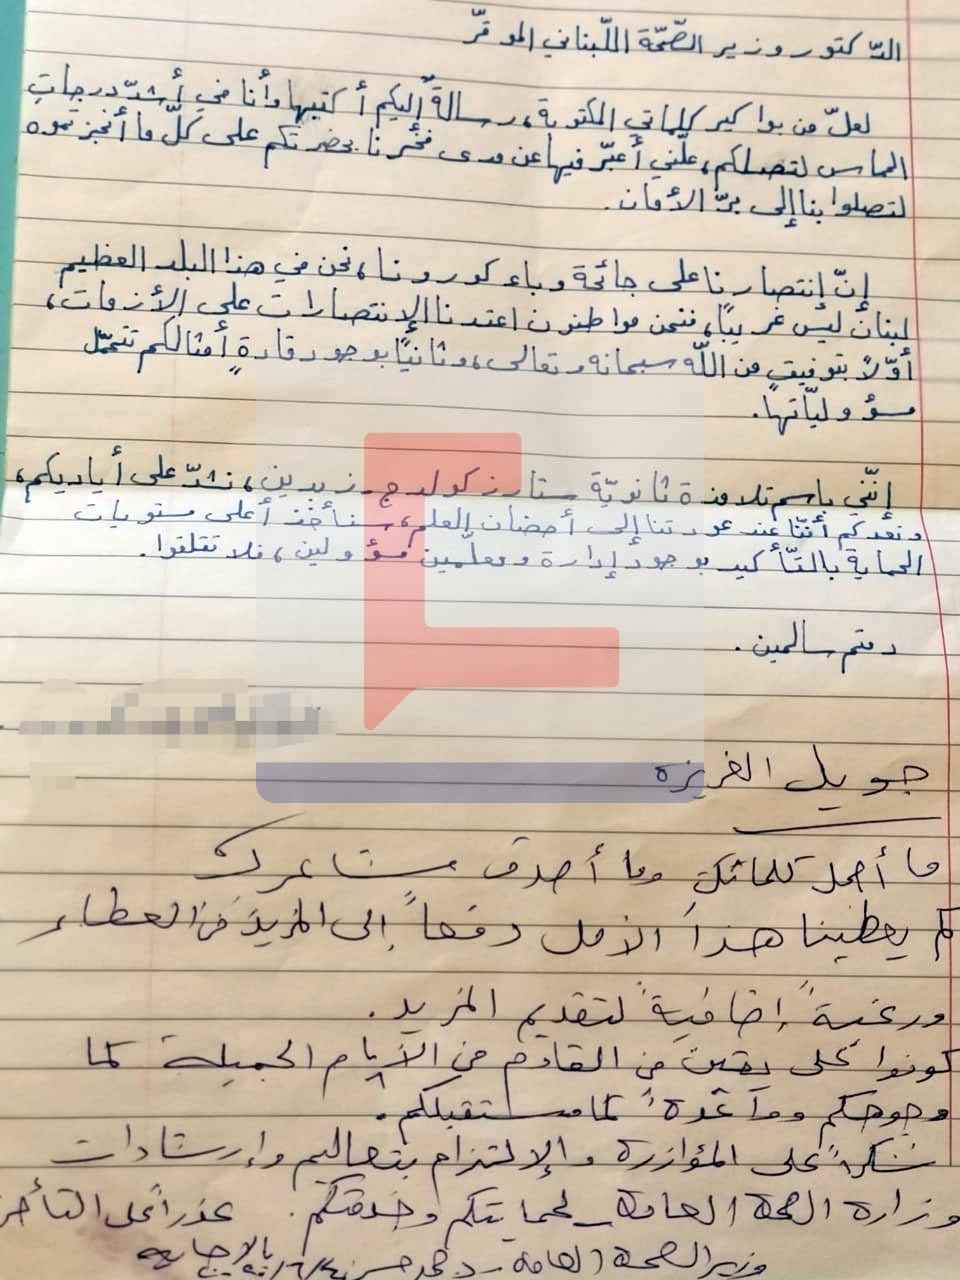 الدّكتور وزير الصّحّة اللّبناني الموقّر
لعلّ من بواكير كلماتي المكتوبة، رسالةٌ إليكم أكتبها وأنا في أشدّ درجاتِ
الماس لتصلكم، علّني أعبّر فيها عن مدى فخرنا بحضرتكم على كلّ ما أنجزتموه
لتصلوا بنا إلى برّ الأمان.
إنّ إنتصارنا على جائحة وباء كورونا، نحن في هذا البلد العظيم
لبنان ليس غريبًا، فنحن مواطنون اعتدنا الإنتصارات على الأزمات،
أوّلاً بتوفيقٍ من اللّه سبحانه وتعالى، وثانيًا بوجود قادةٍ أمثالكم تتحمّل
مسؤوليّاتها.
إنّني باسم تلامذة ثانويّة ستارز كولدج - زبدين، نشدّ على أياديكم،
ونعدكم أنّنا عند عودتنا إلى أحضان العلم، سنأخذ أعلى مستويات
الحماية بالتّأكيد بوجود إدارة ومعلّمين مسؤولين، فلا تقلقوا.
دمتم سالمين.
جويل الغريزه
ما أجمل كلماتكِ وما أصدق مشاعركِ
كم يعطينا هذا الأمل دفعاً إلى المزيد من العطاء
ورغبةً إضافيةً لتقديم المزيد.
كونوا على يقين من القادم من الأيام الجميلة كما
وجوهكم كما مستقبلكم.
شكراً على المؤازرة والإلتزام بتعاليم وإرشادات
وزارة الصحة العامة لحمايتكم وخدمتكم. عذراً على التأخر
وزير الصحة العامة - د. حمد حسن بالإجابة